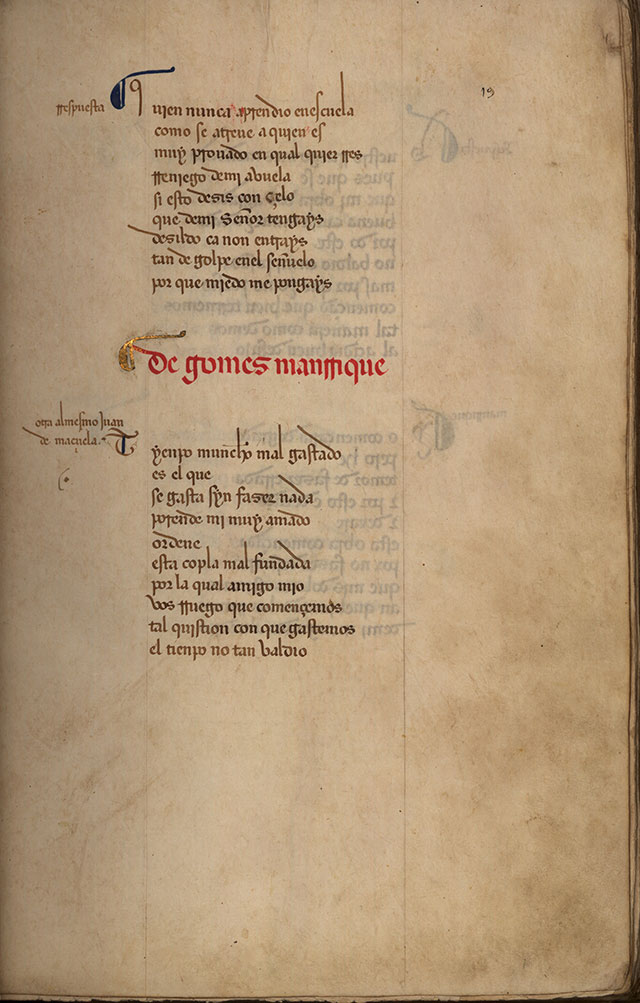 19
rrespuesta
Quien nunca aprendio enescuela
como se atreue a quien es
muy prouado en qual quier rres
rreniego demi avuela
si esto desis con çelo
que demi Señor tengays
desildo ca non entrays
tan de golpe enel señuelo
por que miedo me pongays
De gomes manrrique
otra almesmo Juan
de maçuela.
Tyenpo muncho mal gastado
es el que
se gasta syn faser nada
porende mi muy amado
ordene
esta copla mal fundada
por la qual amigo mio
vos rruego que començemos
tal quistion con que gastemos
el tienpo no tan valdio